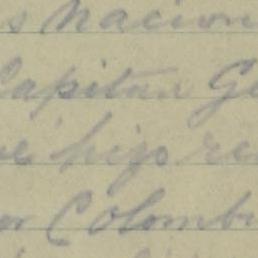 s nacion
Capitan Ge
e hijo re
or Colomb